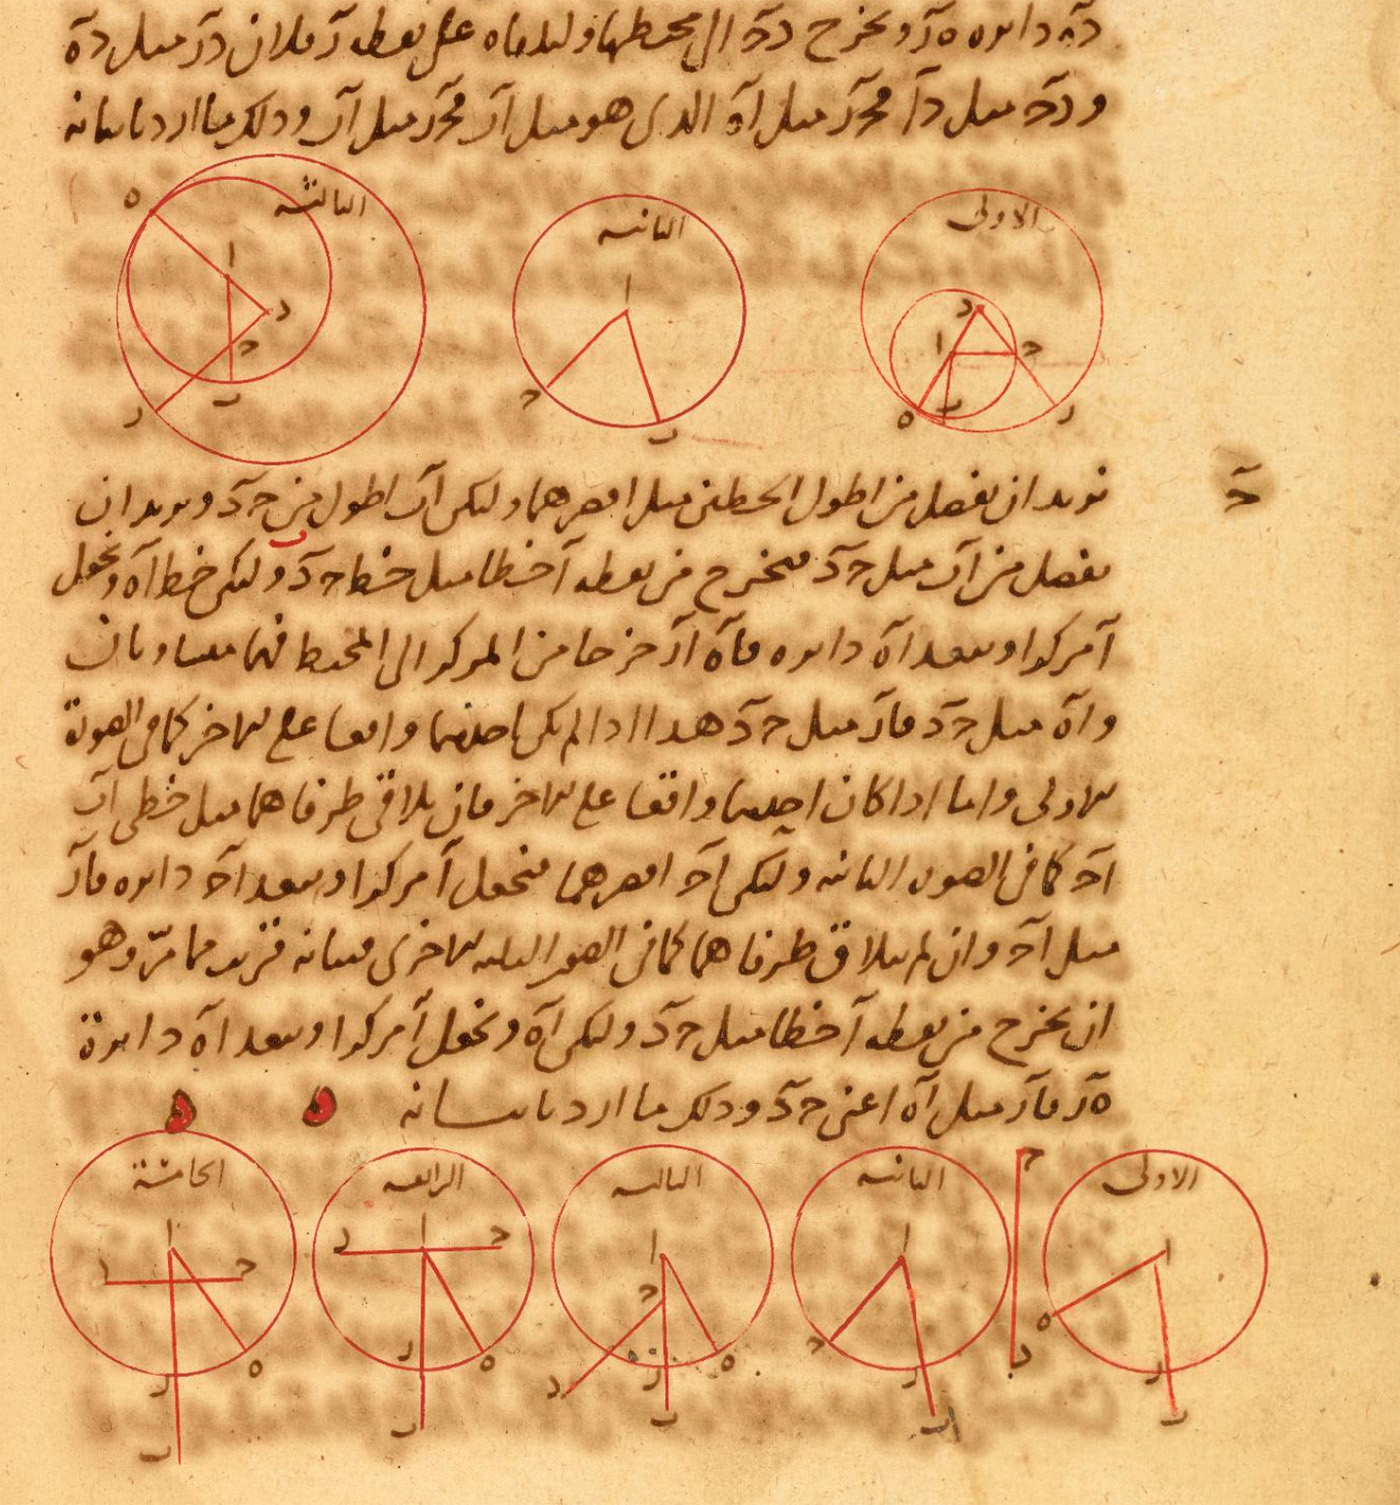 دٓه دايره هٓز و يخرج دٓحٓ الى محيطها و ليلقاه على نقطه زٓ فلان دٓزٓ مثل دٓهٓ
و دٓحٓ مثل دٓآ فحٓزٓ مثل آهٓ الذى هو مثل آبٓ فحٓزٓ مثل آبٓ و ذلك ما اردنا بيانه
الاولى
الثانيه
الثالثه
حٓ
نريد ان نفصل من اطول الخطين مثل اقصرهما و ليكن آبٓ اطول من حٓدٓ و نريد ان
نفصل من آبٓ مثل حٓدٓ فنخرج من نقطه آ خطا مثل خط حٓدٓ و ليكن خط آهٓ و نجعل
آ مركزا و ببعد آهٓ دايره فآهٓ آزٓ خرجا من المركز الى المحيط فهما متساويان
و آهٓ مثل حٓدٓ فآزٓ مثل حٓدٓ هذا اذا لم يكن احدهما واقعا على الاخر كما فى الصورة
الاولى و اما اذا كان احدهما واقعا على الاخر فان تلاقى طرفاهما مثل خطى آبٓ
آحٓ كما فى الصوره الثانيه و ليكن آحٓ اقصرهما فنجعل آ مركزا و ببعد آحٓ دايره فآزٓ
مثل آحٓ و ان لم يتلاق طرفاهما كما فى الصور الثلثه الاخرى فبيانه قريب مما مرّ و هو
ان يخرج من نقطه آ خطا مثل حٓدٓ و ليكن آهٓ و نجعل آ مركزا و ببعد آهٓ دايرة
هٓزٓ فآزٓ مثل آهٓ اعنى حٓدٓ و ذلك ما اردنا بيانه
الاولى
الثانيه
الثالثه
الرابعه
الخامسة